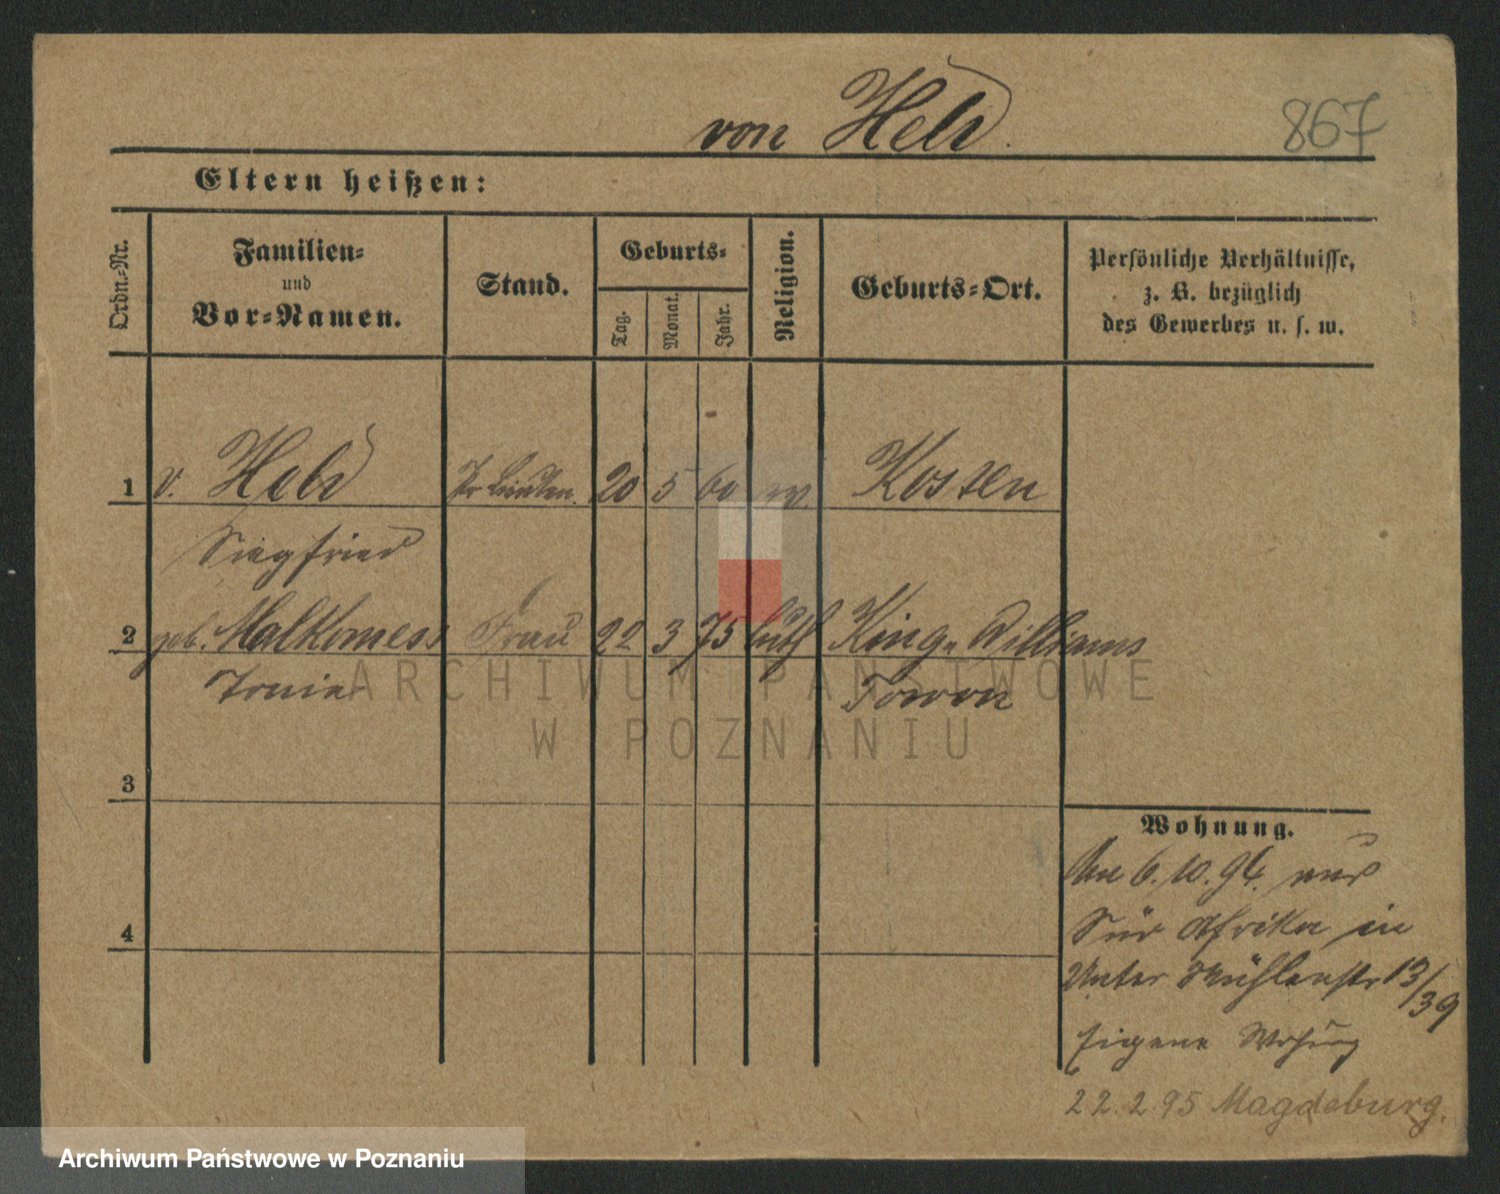 von Held.
867
Eltern heißen:
Ordn.-Nr.
Familien-
und
Vor-Namen.
Stand.
Geburts-
Tag.
Monat.
Jahr.
Religion.
Geburts-Ort.
Persönliche Verhältnisse,
z. B. bezüglich
des Gewerbes u. s. w.
1 v. Held Pr Lieuten. 20 5 60 Kosten
Siegfried
2 geb. Malkomess Frau 22 3 75 luth King-Williams
Town
ARCHIWUM PAŃSTWOWE
W POZNANIU
3
4
Wohnung.
6.10.94. aus
Süd Afrika in
Unter Mühlenstr 13/39
Eigene Wohnung
22.2.95 Magdeburg.
Archiwum Państwowe w Poznaniu